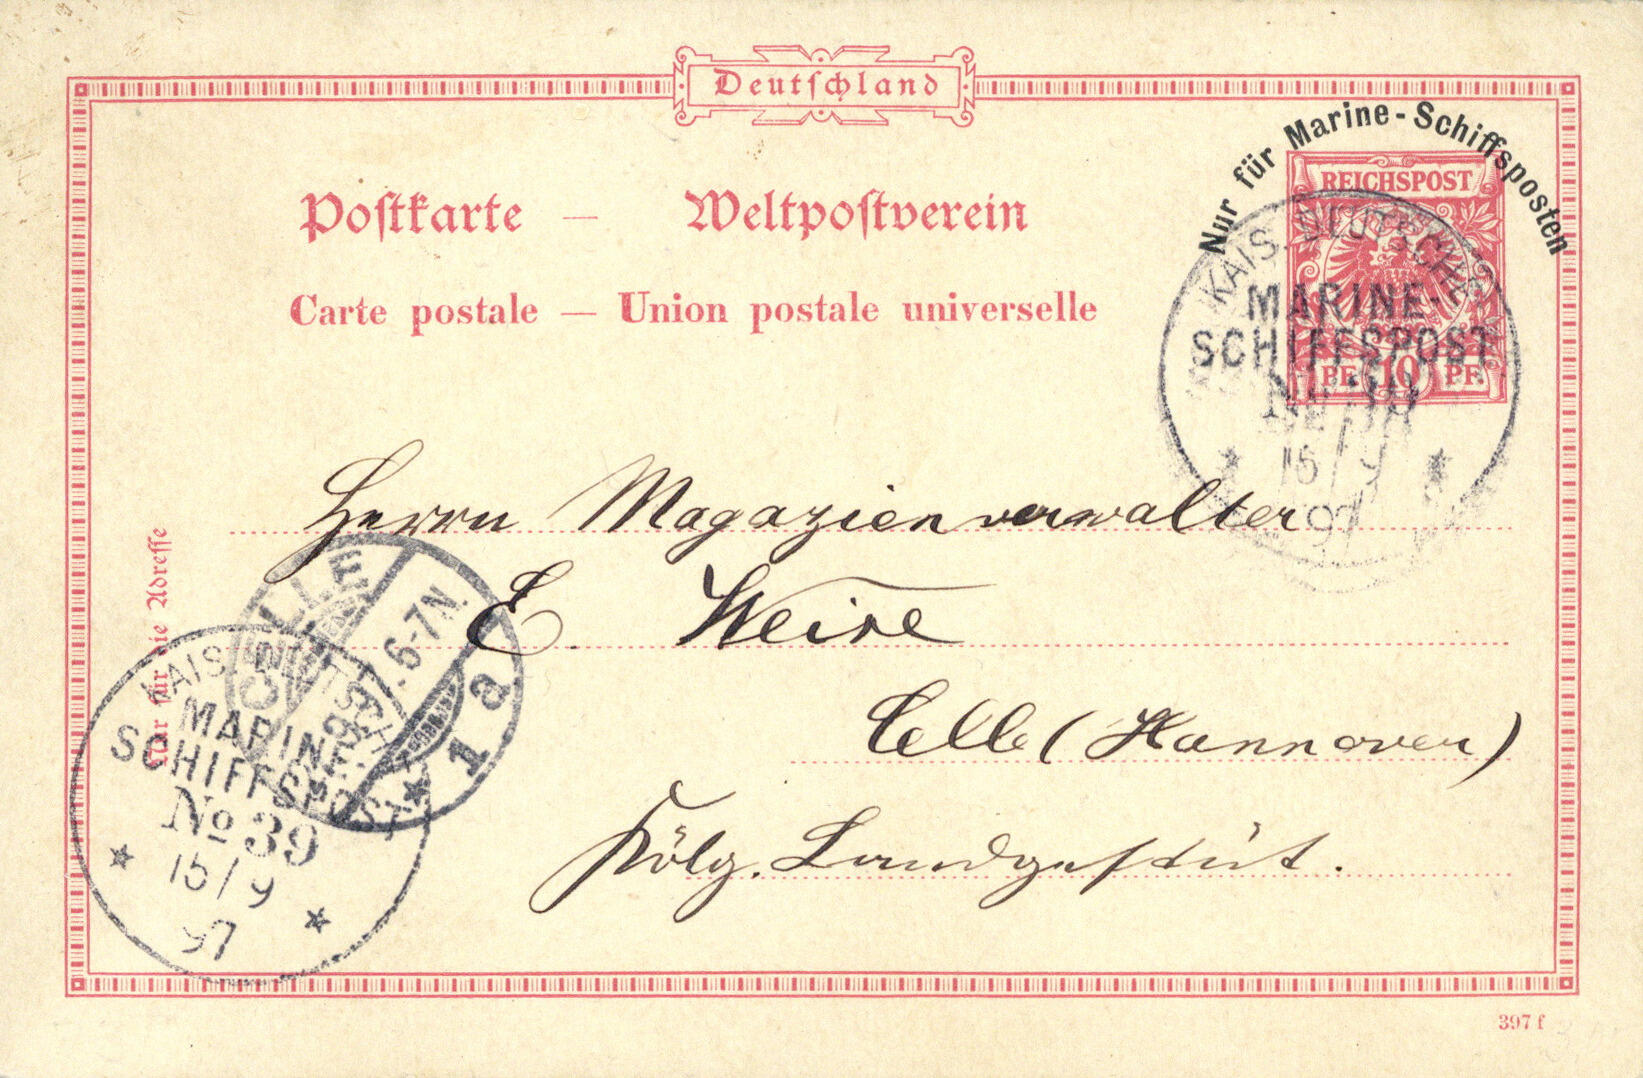 Deutschland
Nur für Marine-Schiffsposten
Postkarte — Weltpostverein
Carte postale — Union postale universelle
REICHSPOST
PF. 10 PF.
KAIS. DEUTSCHE
MARINE-
SCHIFFSPOST
No 39
15/9
97
Herrn Magazienverwalter
E. Weise
Celle (Hannover)
Kölg. Landgestüt.
Nur für die Adresse
CELLE
6-7N.
1a
KAIS. DEUTSCHE
MARINE-
SCHIFFSPOST
No 39
15/9
97
397 f